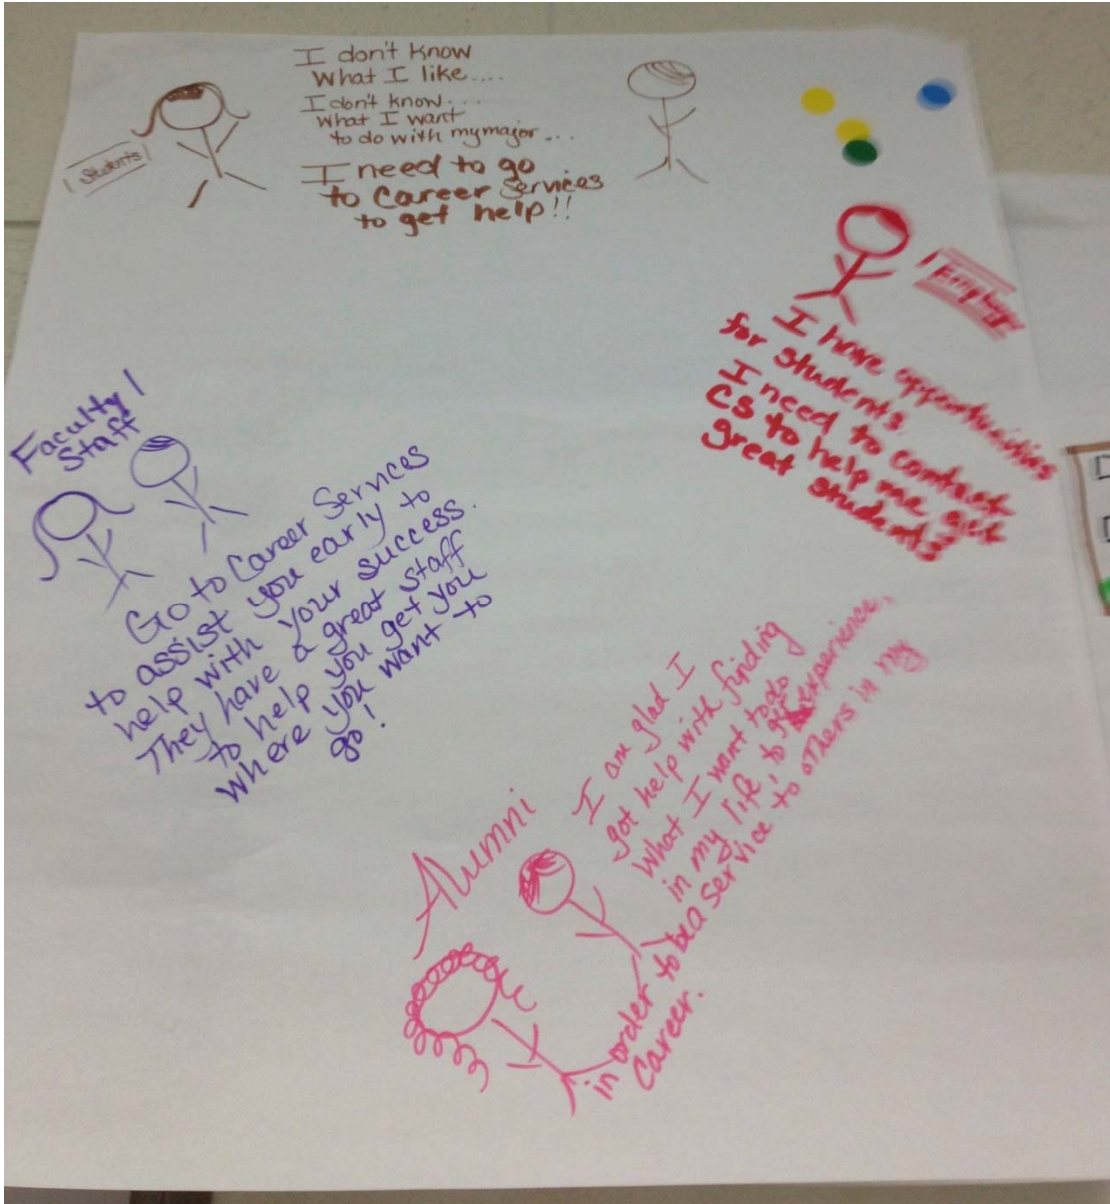 Students
I don't know
What I like....
I don't know...
What I want
to do with my major...
I need to go
to Career Services
to get help!!
Employer
I have opportunities
for students.
I need to contact
CS to help me get
great students
Faculty /
Staff
Go to Career Services
to assist you early to
help with your success.
They have a great staff
to help you get you
where you want to
go!
Alumni
I am glad I
got help with finding
What I want to do
in my life, to get experience,
in order to be a service to others in my
Career.